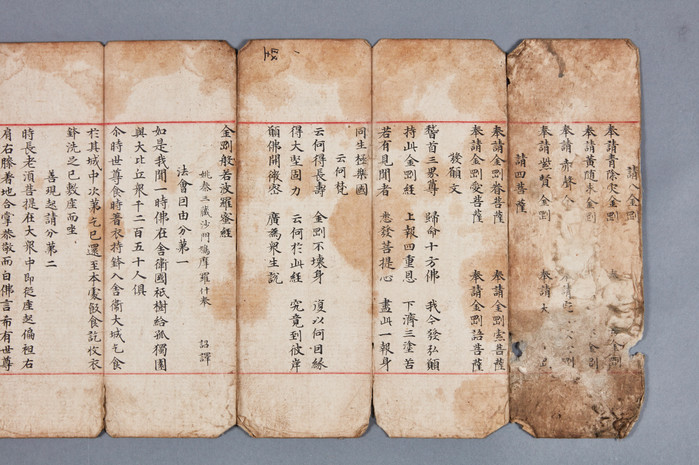 請八金剛
奉請青除灾金剛
奉請黄随求金剛 金剛
奉請赤聲
奉請紫賢金剛 奉請大
請四菩薩
奉請金剛眷菩薩 奉請金剛索菩薩
奉請金剛愛菩薩 奉請金剛語菩薩
發願文
稽首三界尊 歸命十方佛 我今發弘願
持此金剛經 上報四重恩 下濟三塗苦
若有見聞者 悉發菩提心 盡此一報身
同生極樂國
云何梵
云何得長壽 金剛不壞身 復以何因緣
得大堅固力 云何於此經 究竟到彼岸
願佛開微密 廣為衆生說
金剛般若波羅蜜經
姚秦三藏沙門鳩摩羅什奉 詔譯
法會因由分第一
如是我聞一時佛在舍衛國祇樹給孤獨園
與大比丘衆千二百五十人俱
尒時世尊食時著衣持鉢入舍衛大城乞食
於其城中次第乞已還至本處飯食訖收衣
鉢洗足已敷座而坐
善現起請分第二
時長老須菩提在大衆中即從座起偏袒右
肩右膝著地合掌恭敬而白佛言希有世尊